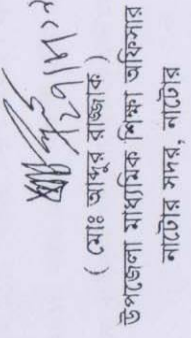 ( মোঃ আব্দুর রাজ্জাক )
উপজেলা মাধ্যমিক শিক্ষা অফিসার
নাটোর সদর, নাটোর